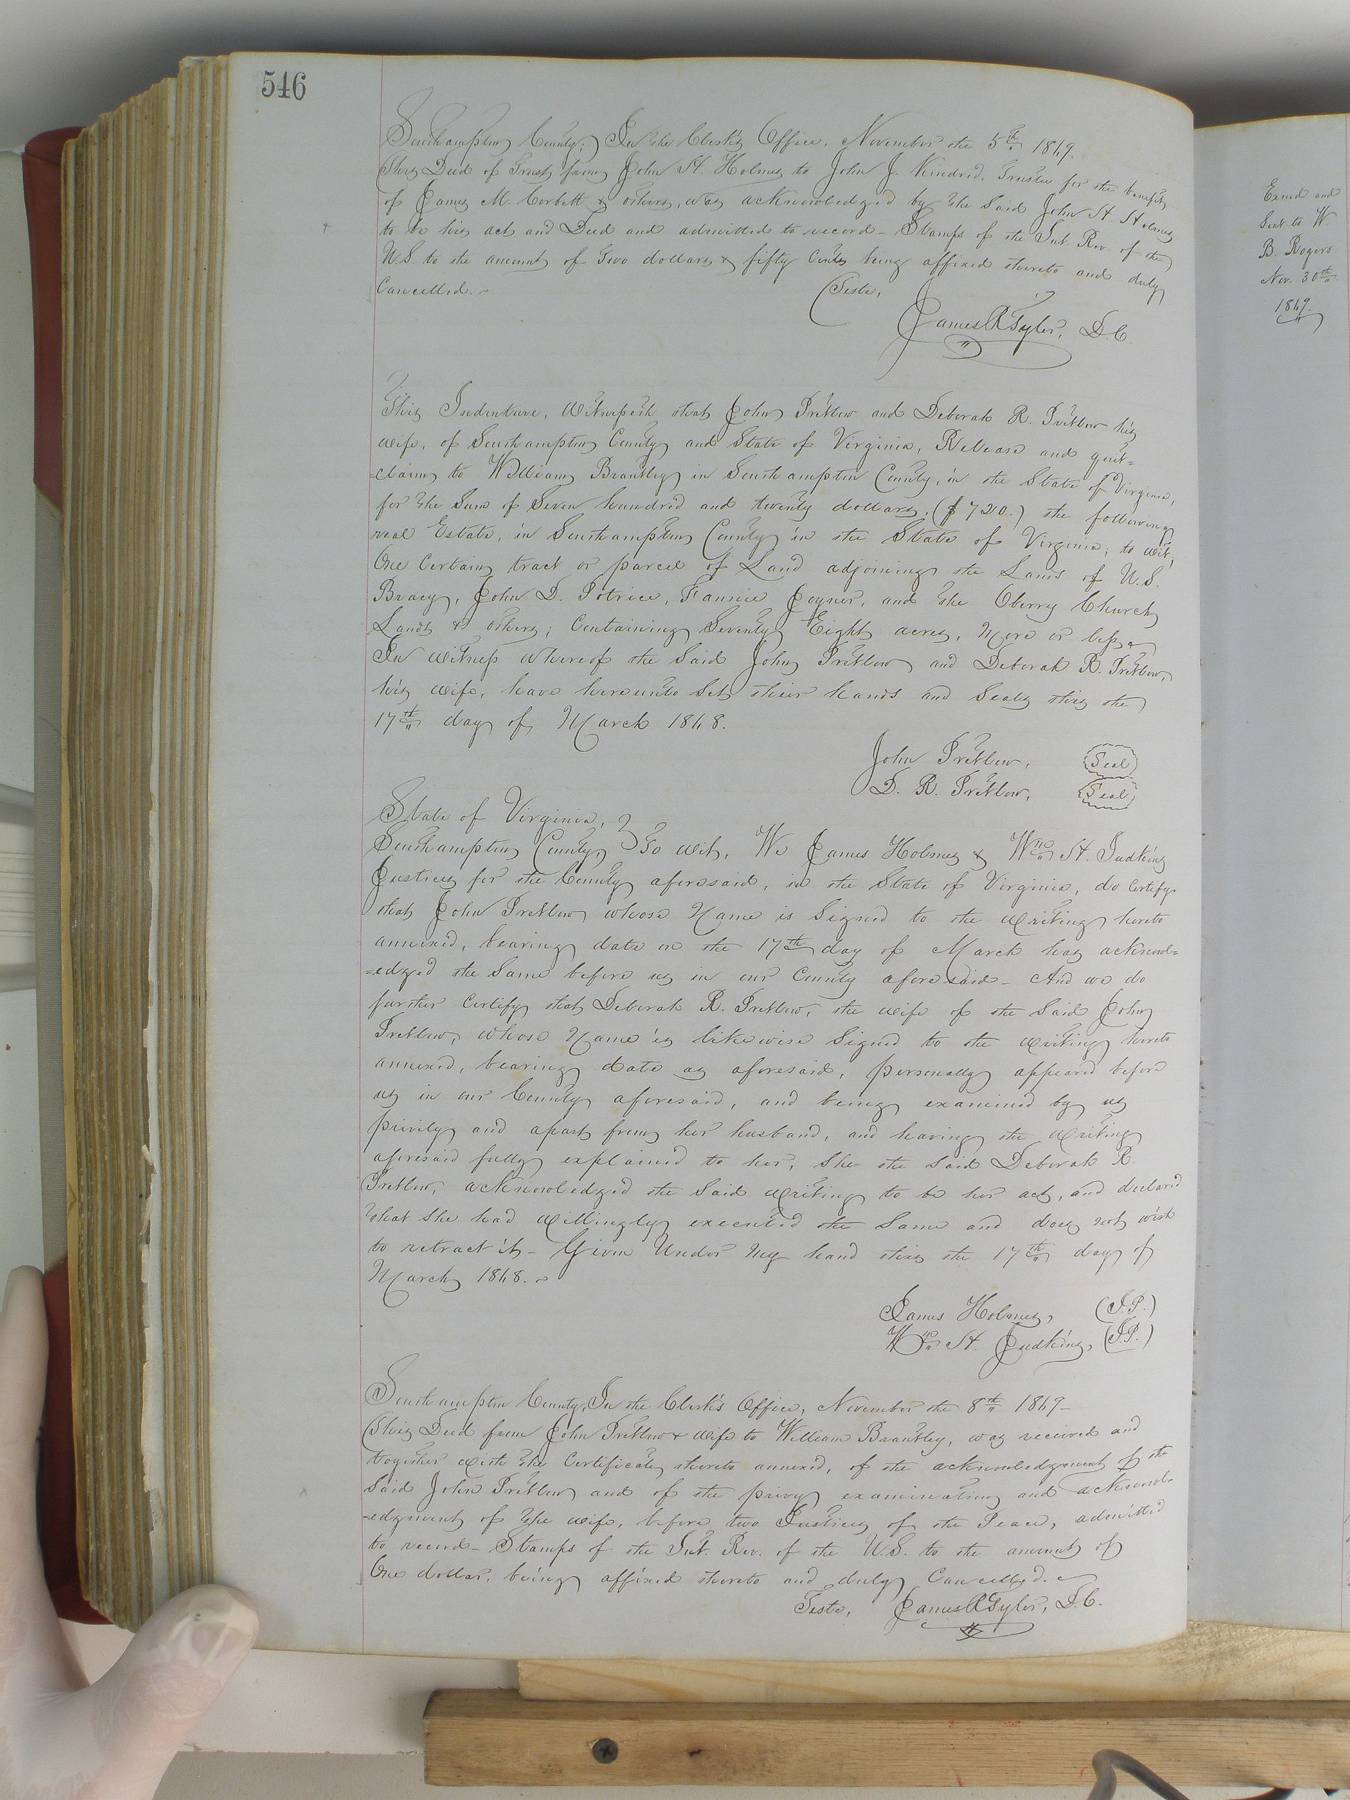 546
Southampton County, In the Clerk's Office, November the 5th 1869.
This Deed of Trust from John H. Holmes to John J. Kindred, Trustee for the benefit
of James M. Corbitt & others, was acknowledged by the said John H. Holmes
to be his act and Deed and admitted to record – Stamps of the Int. Rev. of the
U.S. to the amount of Two dollars & fifty Cents being affixed thereto and duly
Cancelled.
Teste,
James R Tyler, D.C.
This Indenture, Witnesseth that John Pretlow and Deborah R. Pretlow his
wife, of Southampton County and State of Virginia, Release and quit=
=claim to William Brantley in Southampton County, in the State of Virginia,
for the Sum of Seven hundred and twenty dollars, ($720.) the following
real Estate, in Southampton County in the State of Virginia, to wit;
One Certain tract or parcel of Land adjoining the Lands of U.S.
Bracy, John D. Fannie Joyner, and the Cherry Church
Lands & others; Containing Seventy Eight acres, More or less
In witness whereof the Said John Pretlow and Deborah R. Pretlow,
his wife, have hereunto Set their hands and Seals this the
17th day of March 1868.
John Pretlow, Seal
D. R. Pretlow, Seal
State of Virginia,
Southampton County, To wit, We James Holmes & Wm H. Judkins
Justices for the County aforesaid, in the State of Virginia, do Certify
that John Pretlow whose Name is Signed to the writing hereto
annexed, bearing date on the 17th day of March has acknowl=
=edged the Same before us in our County aforesaid – And we do
further Certify that Deborah R. Pretlow, the wife of the Said John
Pretlow, whose Name is likewise Signed to the writing hereto
annexed, bearing date as aforesaid, personally appeared before
us in our County aforesaid, and being examined by us
privily and apart from her husband, and having the writing
aforesaid fully explained to her, She the Said Deborah R.
Pretlow, acknowledged the Said writing to be her act, and declared
that She had willingly executed the Same and does not wish
to retract it – Given Under My hand this the 17th day of
March 1868.
James Holmes, (J.P.)
Wm H. Judkins, (J.P.)
Southampton County, In the Clerk's Office, November the 8th 1869 –
This Deed from John Pretlow & wife to William Brantley, was received and
together with the Certificate thereto annexed, of the acknowledgment of the
Said John Pretlow and of the privy examination and acknowl=
=edgment of the wife, before two Justices of the Peace, admitted
to record – Stamps of the Int. Rev. of the U.S. to the amount of
One dollar, being affixed thereto and duly Cancelled.
Teste, James R Tyler, D.C.
Exmd and
Sent to W
B. Rogers
Nov. 30th
1869.